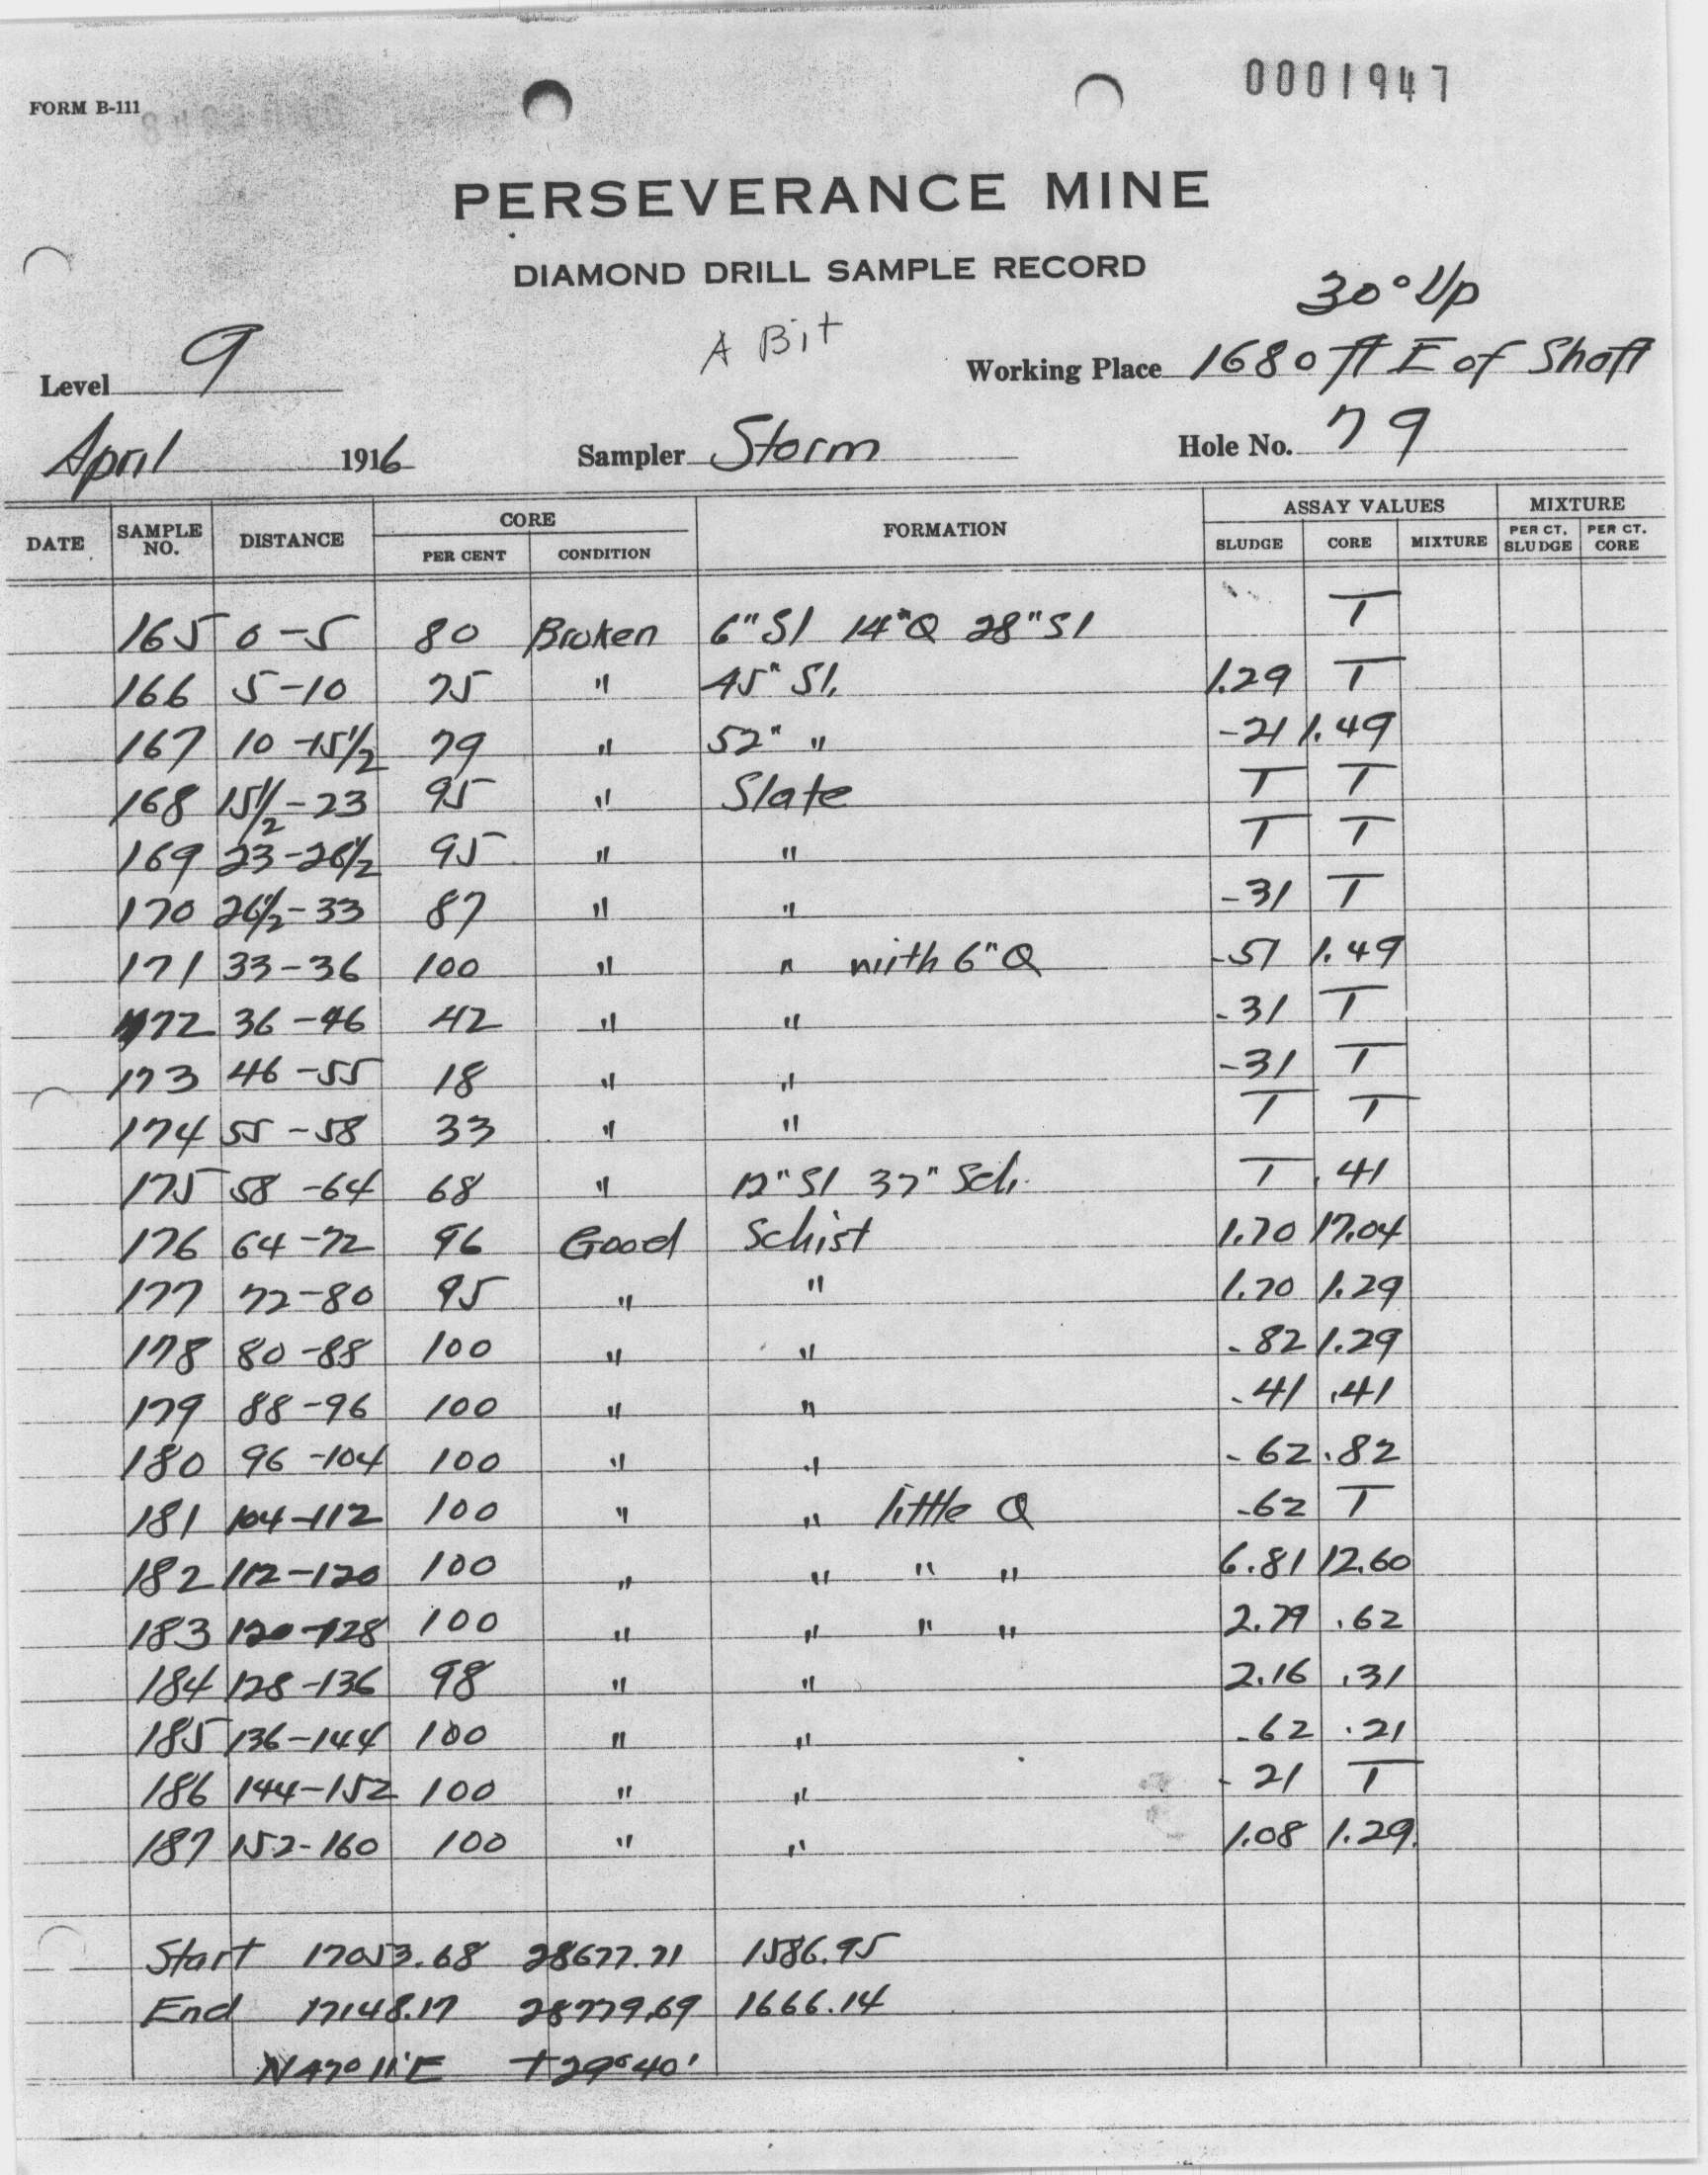 0001947
FORM B-111
PERSEVERANCE MINE
DIAMOND DRILL SAMPLE RECORD
30° Up
A Bit
Level 9 Working Place 1680 ft E of Shaft
April 1916 Sampler Storm Hole No. 79
DATE SAMPLE NO. DISTANCE CORE PER CENT CONDITION FORMATION ASSAY VALUES SLUDGE CORE MIXTURE MIXTURE PER CT. SLUDGE PER CT. CORE
165 0-5 80 Broken 6" Sl 14" Q 28" Sl T
166 5-10 75 " 45" Sl. 1.29 T
167 10-15 1/2 79 " 52" " -21 1.49
168 15 1/2-23 95 " Slate T T
169 23-26 1/2 95 " " T T
170 26 1/2-33 87 " " -31 T
171 33-36 100 " " with 6" Q -51 1.49
172 36-46 42 " " -31 T
173 46-55 18 " " -31 T
174 55-58 33 " " T T
175 58-64 68 " 12" Sl 37" Sch. T .41
176 64-72 96 Good Schist 1.70 17.04
177 72-80 95 " " 1.70 1.29
178 80-88 100 " " -82 1.29
179 88-96 100 " " -41 .41
180 96-104 100 " " -62 .82
181 104-112 100 " " little Q -62 T
182 112-120 100 " " " " 6.81 12.60
183 120-128 100 " " " " 2.79 .62
184 128-136 98 " " 2.16 .31
185 136-144 100 " " -62 .21
186 144-152 100 " " -21 T
187 152-160 100 " " 1.08 1.29.
Start 17053.68 28677.71 1586.95
End 17148.17 28779.69 1666.14
N 47° 11' E +29° 40'